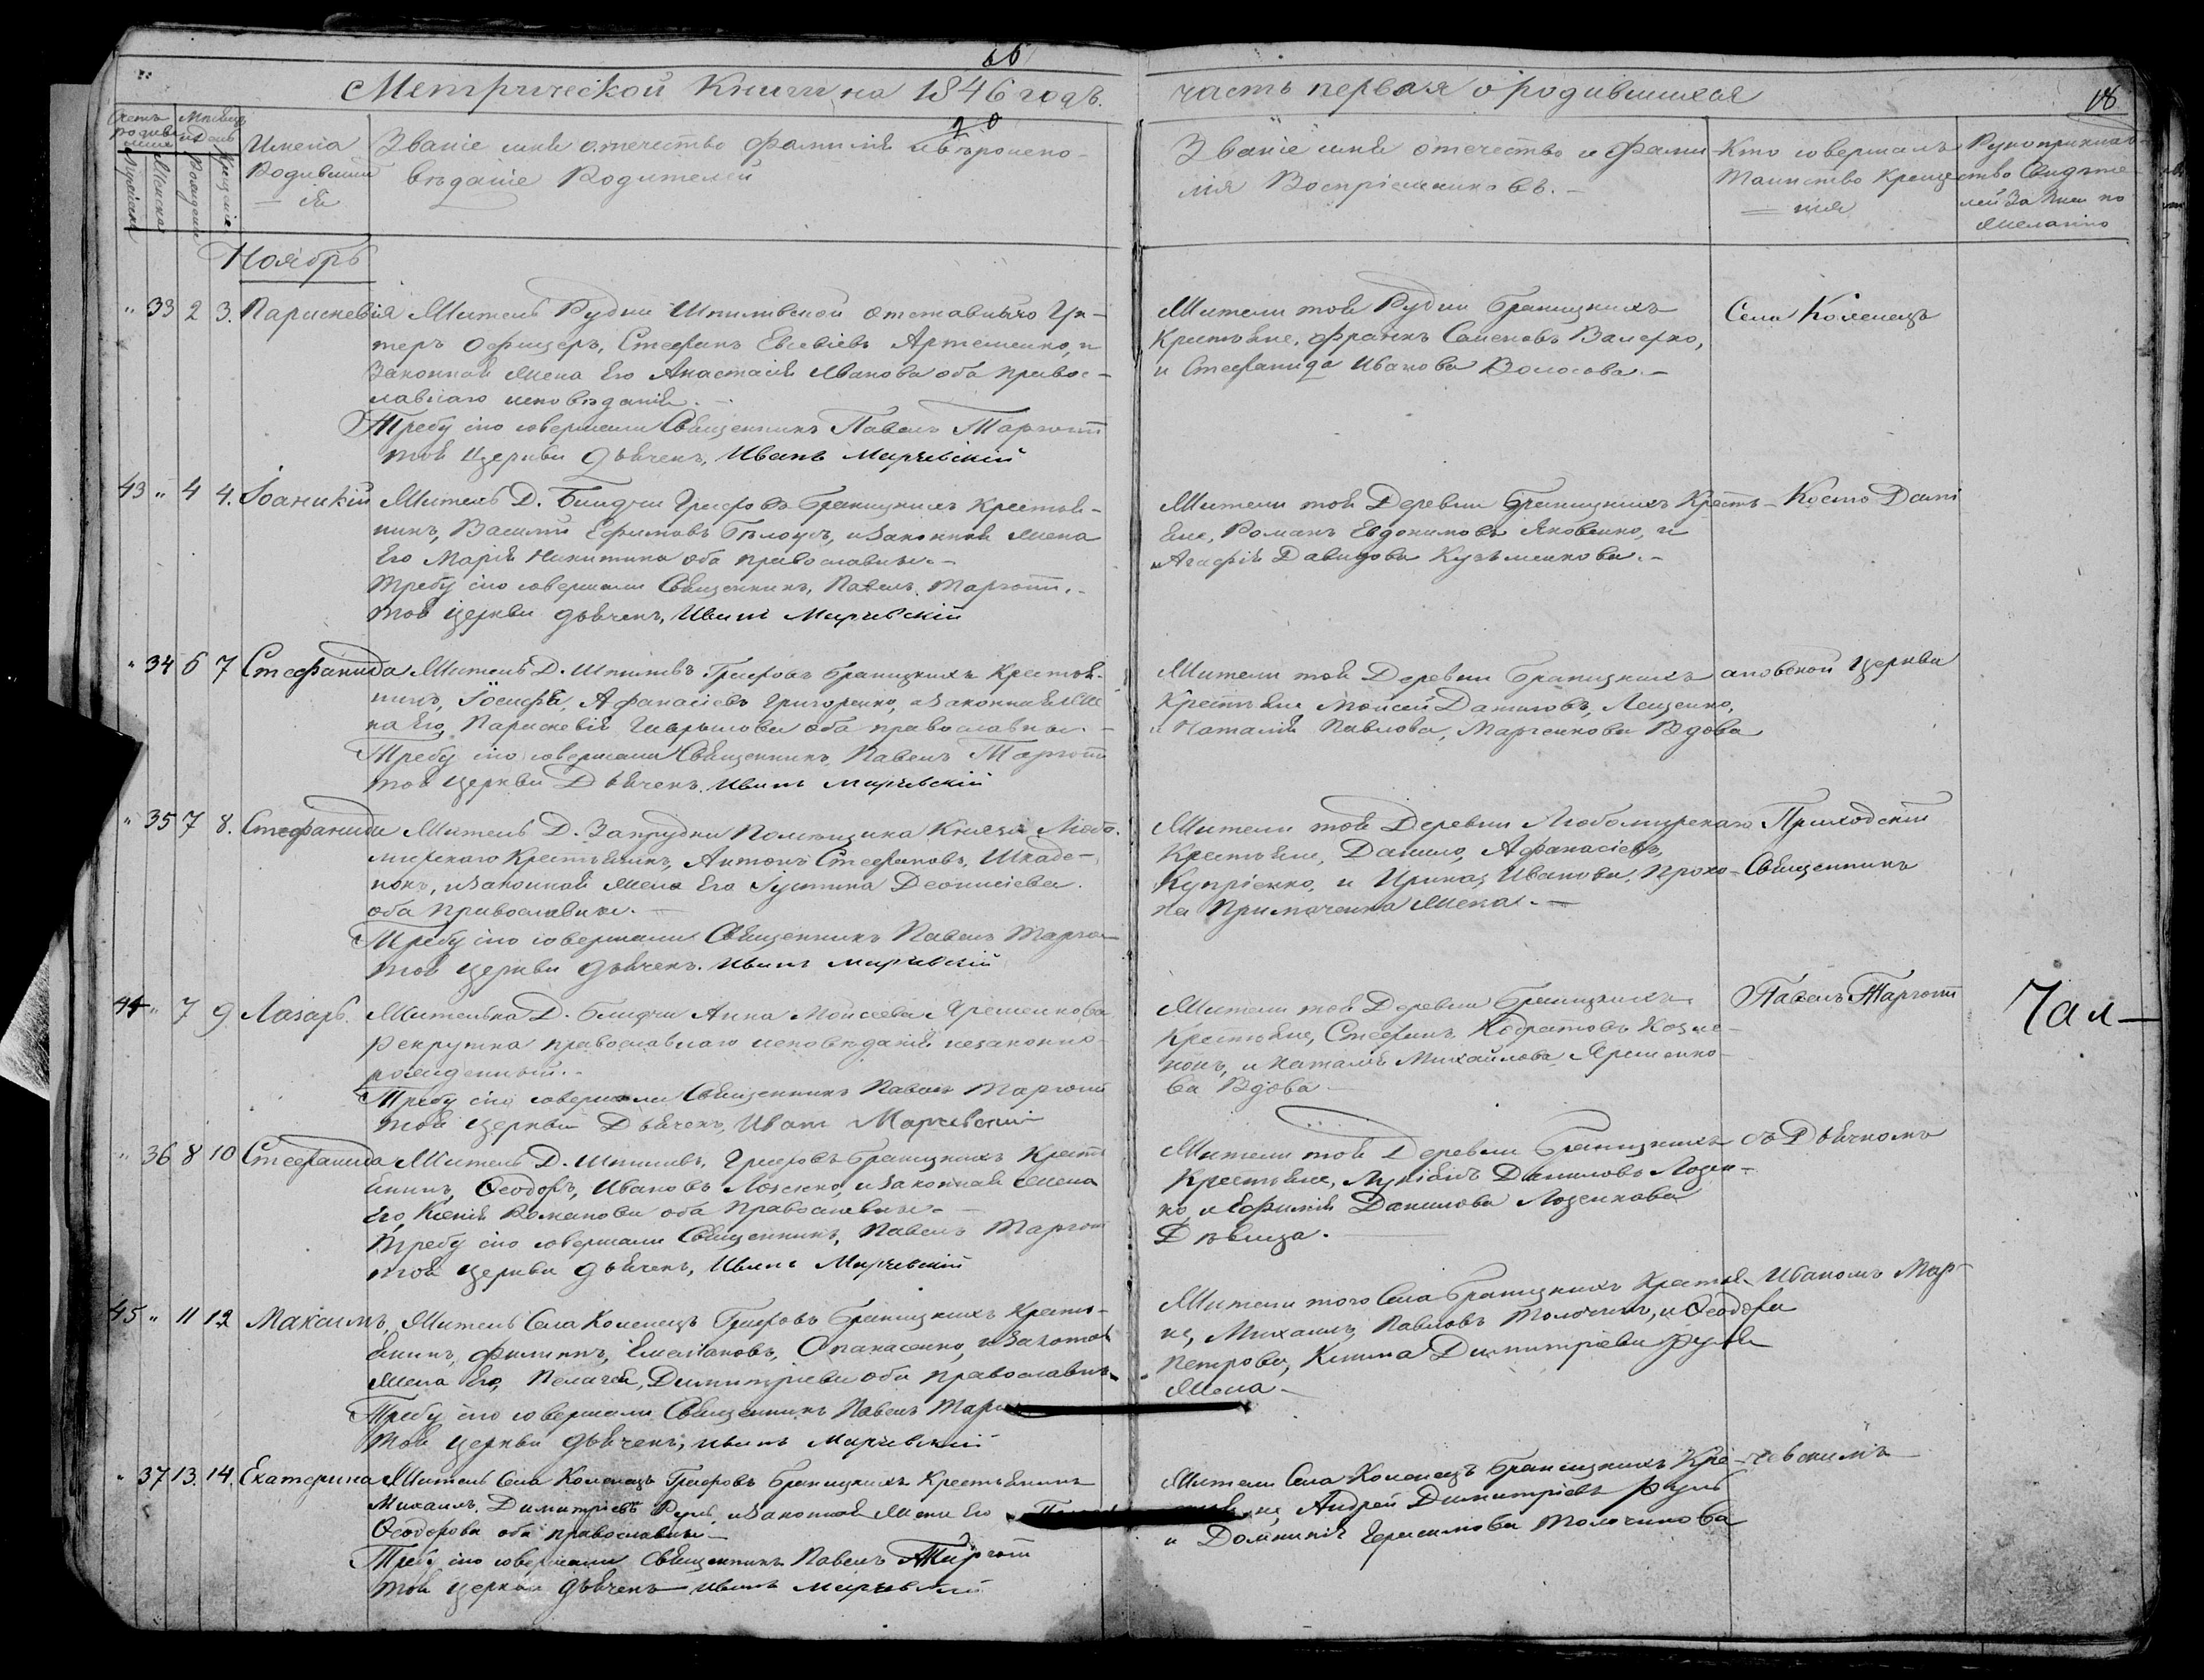 66
Метрической Книги на 1846 годъ.
часть первая о родившихся
18
Счетъ родившихся
Мѣсяцъ и День
Мужескаго
Женска
Рожденія
Крещенія
Имена Родившихся
Званіе имя отечество фамилія и вѣроисповѣданіе Родителей
Званіе имя отечество и фамилія Воспріемниковъ. -
Кто совершалъ Таинство Крещенія
Рукоприкладство Свидѣтелей записи по желанію
Ноябрь
" 33 2 3. Параскевія Житель Рудни Шпилевской отставный Унтеръ
Офицеръ, Стефанъ Евсевіевъ Артеменко, и
Законная Жена Его Анастасія Иванова оба православнаго
исповѣданія. -
Требу сію совершали Священникъ Павелъ Таргони
той Церкви Дьячекъ, Иванъ Марчевскій
Жители той Рудни Браницкихъ
Крестьяне, Франкъ Семеновъ
и Стефанида Иванова Волосова. -
Села Коленецъ
43 " 4 4. Іоаникій Житель Д. Блидчи Графовъ Браницкихъ Крестьянинъ,
Василій Ефимовъ Бѣлоусъ, и Законная Жена
Его Марія Никитина оба православные. -
Требу сію совершали Священникъ, Павелъ Таргони.
той Церкви Дьячекъ, Иванъ Марчевскій
Жители той Деревни Браницкихъ Крестьяне,
Романъ Евдокимовъ Яковенко, и
Агафія Давидова Кузьменкова. -
Космо Дамі
" 34 6 7 Стефанида Житель Д. Шпилевъ Графовъ Браницкихъ Крестьянинъ,
Іосифъ, Афанасіевъ Григоренко, и Законная Жена
Его, Параскевія Гаврилова оба православные. -
Требу сію совершали Священникъ Павелъ Таргони
той Церкви Дьячекъ. Иванъ Марчевскій
Жители той Деревни Браницкихъ
Крестьяне Моисей Даниловъ, Лещенко,
и Наталія Павлова, Марченкова Вдова
ановской Церкви
" 35 7 8. Стефанида Житель Д. Запрудки Помѣщика Князя Любомирскаго
Крестьянинъ, Антонъ Стефановъ, Шкаденокъ,
и Законная Жена Его Іустина Деонисіева.
оба Православные. -
Требу сію совершали Священникъ Павелъ Таргони
той Церкви Дьячекъ. Иванъ Марчевскій
Жители той Деревни Любомирскаго
Крестьяне, Данило, Афанасіевъ,
Купріенко, и Ирина, Иванова, Прокопа
Примаченка Жена. -
Приходскій
Священникъ
44 " 7 9. Лазарь. Жителька Д. Блидчи Анна Моисеева Ярешенкова
рекрутка православнаго исповѣданія незаконнорожденный. -
Требу сію совершали Священникъ Павелъ Таргони
той Церкви Дьячекъ, Иванъ Марчевскій
Жители той Деревни Браницкихъ
Крестьяне, Стефанъ, Кодратовъ
и Наталія Михайлова Ярешенкова
Вдова -
Павелъ Таргони
" 36 8 10 Стефанида Житель Д. Шпилевъ, Графовъ Браницкихъ Крестьянинъ,
Ѳеодоръ, Ивановъ и Законная Жена
Его, Ксенія Романова оба Православные -
Требу сію совершали Священникъ, Павелъ Таргони
той Церкви Дьячекъ, Иванъ Марчевскій
Жители той Деревни Браницкихъ
Крестьяне, Лукіянъ Даниловъ Лозенко
и Ефимія Данилова Лозенкова
Дѣвица. -
съ Дьячкомъ
45 " 11 12 Максимъ, Житель Села Коленецъ Графовъ Браницкихъ Крестьянинъ,
Филиппъ, Емельяновъ, Опанасенко, и Законная
Жена Его, Пелагея, Димитріева оба православные
Требу сію совершали Священникъ Павелъ
той Церкви Дьячекъ, Иванъ Марчевскій
Жители того Села Браницкихъ Крестьяне,
Михаилъ, Павловъ Толочинъ, и Ѳеодора
Петрова, Димитріева
Жена -
Иваномъ Мар-
" 37 13. 14. Екатерина Житель Села Коленецъ Графовъ Браницкихъ Крестьянинъ
Михаилъ, Димитріевъ и Законная Жена Его
Ѳеодорова оба православные -
Требу сію совершали Священникъ Павелъ Таргони
той Церкви Дьячекъ Иванъ Марчевскій
Жители Села Коленецъ Браницкихъ Крестьяне,
Андрей Димитріевъ
и Домникія Герасимова Толочинова
чевскимъ